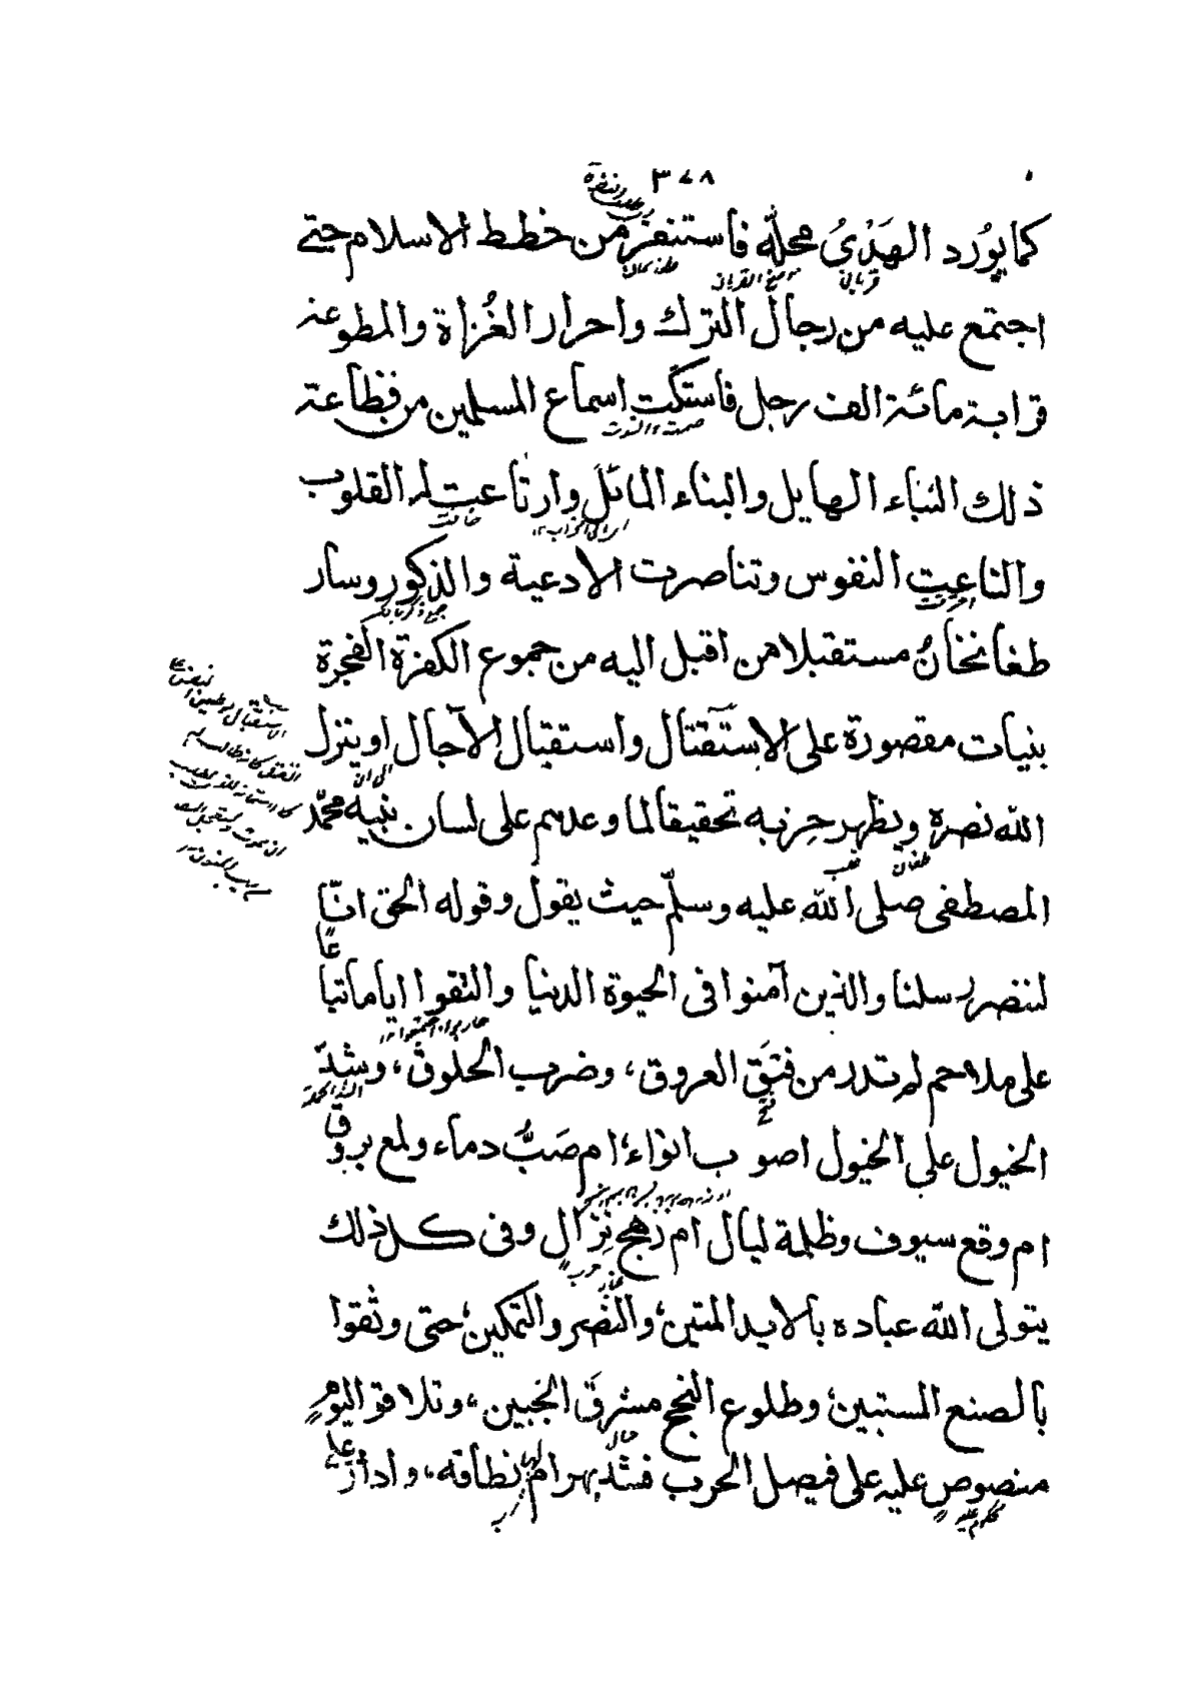 ٣٧٨
كما يورد الهَدْىُ محلّه فاستنفر من خطط الاسلام حتى
اجتمع عليه من رجال الترك واحرار الغُزاة والمطوعة
قرابة مائة الف رجل فاستكّت اسماع المسلمين من فظاعة
ذلك النباء الهايل والبناء المائل وارتاعت له القلوب
والتاعت النفوس وتناصرت الادعية والذكور وسار
طغانخانُ مستقبلا من اقبل اليه من جموع الكفرة الفجرة
بنيات مقصورة على الاستقتال واستقبال الآجال او ينزل
الله نصره ويظهر حزبه تحقيقا لما وعدهم على لسان نبيه محمّد
المصطفى صلى الله عليه وسلّم حيث يقول وقوله الحق انّا
لننصر رسلنا والذين آمنوا فى الحيوة الدنيا والتقوا اياما تباعًا
على ملاحم لم تدر من فتَق العروق، وضرب الحلوق، وشدّ
الخيول على الخيول اصوب انواء، ام صَبُّ دماء ولمع بروق
ام وقع سيوف وظلمة ليال ام رهج نِزال وفى كل ذلك
يتولى الله عباده بالايد المتين، والنّصر والتمكين، حتى وثقوا
بالصنع المستبين، وطلوع النجح مشرقَ الجبين، وتلاقوا اليوم
منصوصٍ عليه على فيصل الحرب فشدّ بهرام لها نطاقه، وادار على